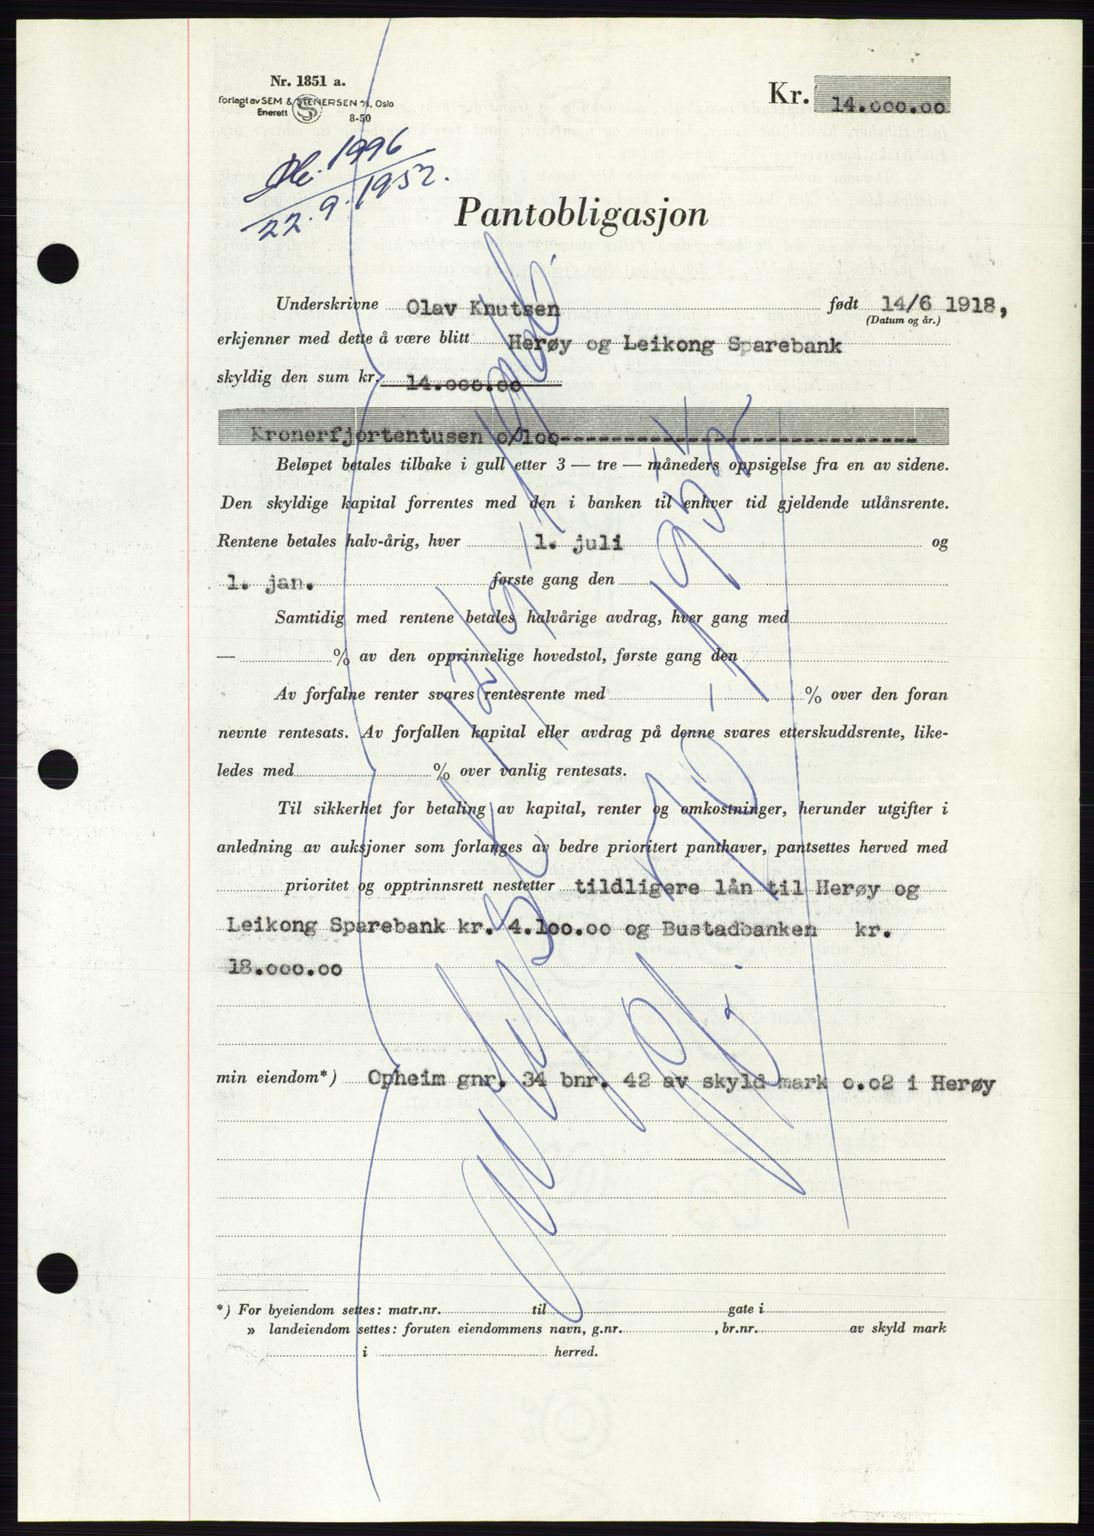 Nr. 1851 a.
Forlagt av SEM & STENERSEN A/S, Oslo
Enerett
8-50
Kr. 14.000.00
1996
22.9.1952.
Pantobligasjon
Underskrivne Olav Knutsen født 14/6 1918,
(Datum og år.)
erkjenner med dette å være blitt Herøy og Leikong Sparebank
skyldig den sum kr. 14.000.00
Kronerfjortentusen o/100---------------------------
Beløpet betales tilbake i gull etter 3 — tre — måneders oppsigelse fra en av sidene.
Den skyldige kapital forrentes med den i banken til enhver tid gjeldende utlånsrente.
Rentene betales halv-årig, hver 1. juli og
1. jan. første gang den
Samtidig med rentene betales halvårige avdrag, hver gang med
— % av den opprinnelige hovedstol, første gang den
Av forfalne renter svares rentesrente med % over den foran
nevnte rentesats. Av forfallen kapital eller avdrag på denne svares etterskuddsrente, like-
ledes med % over vanlig rentesats.
Til sikkerhet for betaling av kapital, renter og omkostninger, herunder utgifter i
anledning av auksjoner som forlanges av bedre prioritert panthaver, pantsettes herved med
prioritet og opptrinnsrett nestetter tildligere lån til Herøy og
Leikong Sparebank kr. 4.100.00 og Bustadbanken kr.
18.000.00
min eiendom*) Opheim gnr. 34 bnr. 42 av skyld mark 0.02 i Herøy
*) For byeiendom settes: matr.nr. til gate i
» landeiendom settes: foruten eiendommens navn, g.nr. , br.nr. av skyld mark
i herred.